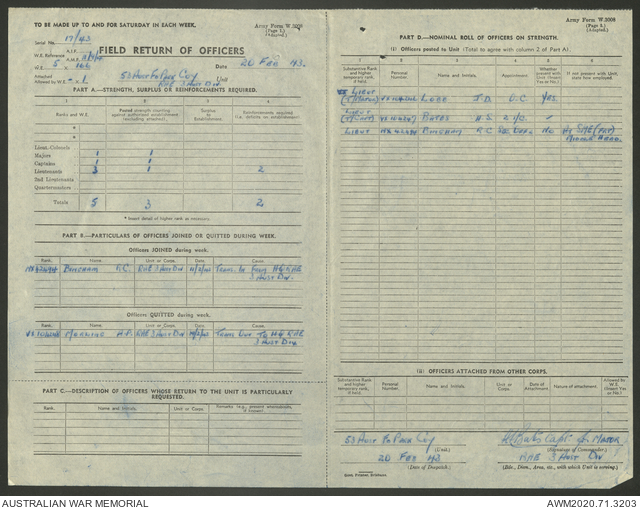 TO BE MADE UP TO AND FOR SATURDAY IN EACH WEEK.
Army Form W.3008
(Page 1.)
(Adapted.)
Serial No. 17/43
W.E. Reference
A.I.F.
FIELD RETURN OF OFFICERS
W.E. 5
Attached
Allowed by W.E. - 1
53 Aust Fd Park Coy
RAE 3 Aust Div
Unit
Date 20 Feb 43.
PART A.—STRENGTH, SURPLUS OR REINFORCEMENTS REQUIRED.
1 2 3 4
Ranks and W.E.
Posted strength counting against authorized establishment (excluding attached).
Surplus to Establishment.
Reinforcements required (i.e. deficits on establishment).
Lieut.-Colonels
Majors 1 1
Captains 1 1
Lieutenants 3 1 2
2nd. Lieutenants
Quartermasters
Totals 5 3 2
* Insert detail of higher rank as necessary.
PART B.—PARTICULARS OF OFFICERS JOINED OR QUITTED DURING WEEK.
Officers JOINED during week.
Rank. Name. Unit or Corps. Date. Cause.
Bingham R.C. RAE 3 Aust Div Trans. in from HQ RAE
3 Aust Div.
Officers QUITTED during week.
Rank. Name. Unit or Corps. Date. Cause.
H.P. RAE 3 Aust Div Trans Out To HQ RAE
3 Aust Div.
PART C.—DESCRIPTION OF OFFICERS WHOSE RETURN TO THE UNIT IS PARTICULARLY REQUESTED.
Rank. Name and Initials. Unit or Corps. Remarks (e.g., present whereabouts, if known).
Army Form W.3008
(Page 2.)
(Adapted.)
PART D.—NOMINAL ROLL OF OFFICERS ON STRENGTH.
(i) Officers posted to Unit (Total to agree with column 2 of Part A).
1 2 3 4 5 6
Substantive Rank and higher temporary rank, if held.
Personal Number.
Name and Initials.
Appointment.
Whether present with Unit (Insert Yes or No.)
If not present with Unit, state how employed.
Lieut
(T/Major) Lobb J.D. O.C. Yes.
Lieut
Bates H.S. 2 I/C.
Lieut Bingham R.C. No
(ii) OFFICERS ATTACHED FROM OTHER CORPS.
Substantive Rank and higher temporary rank, if held.
Personal Number.
Name and Initials.
Unit or Corps.
Date of Attachment.
Nature of attachment.
Allowed by W.E. (Insert Yes or No.)
53 Aust Fd Park Coy
(Unit.)
20 Feb 43
(Date of Despatch.)
Capt for Major
(Signature of Commander.)
RAE 3 Aust Div
(Bde., Divn., Area, etc., with which Unit is serving.)
AUSTRALIAN WAR MEMORIAL
AWM2020.71.3203